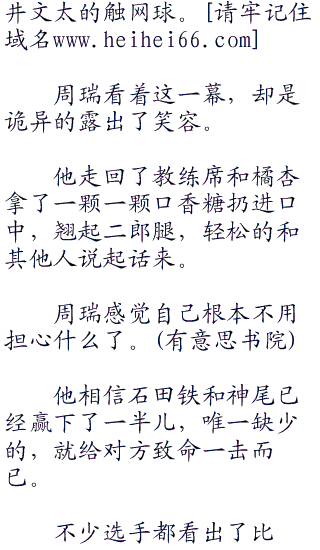 井文太的触网球。[请牢记住
域名www.heihei66.com]
周瑞看着这一幕，却是
诡异的露出了笑容。
他走回了教练席和橘杏
拿了一颗一颗口香糖扔进口
中，翘起二郎腿，轻松的和
其他人说起话来。
周瑞感觉自己根本不用
担心什么了。(有意思书院)
他相信石田铁和神尾已
经赢下了一半儿，唯一缺少
的，就给对方致命一击而
已。
不少选手都看出了比